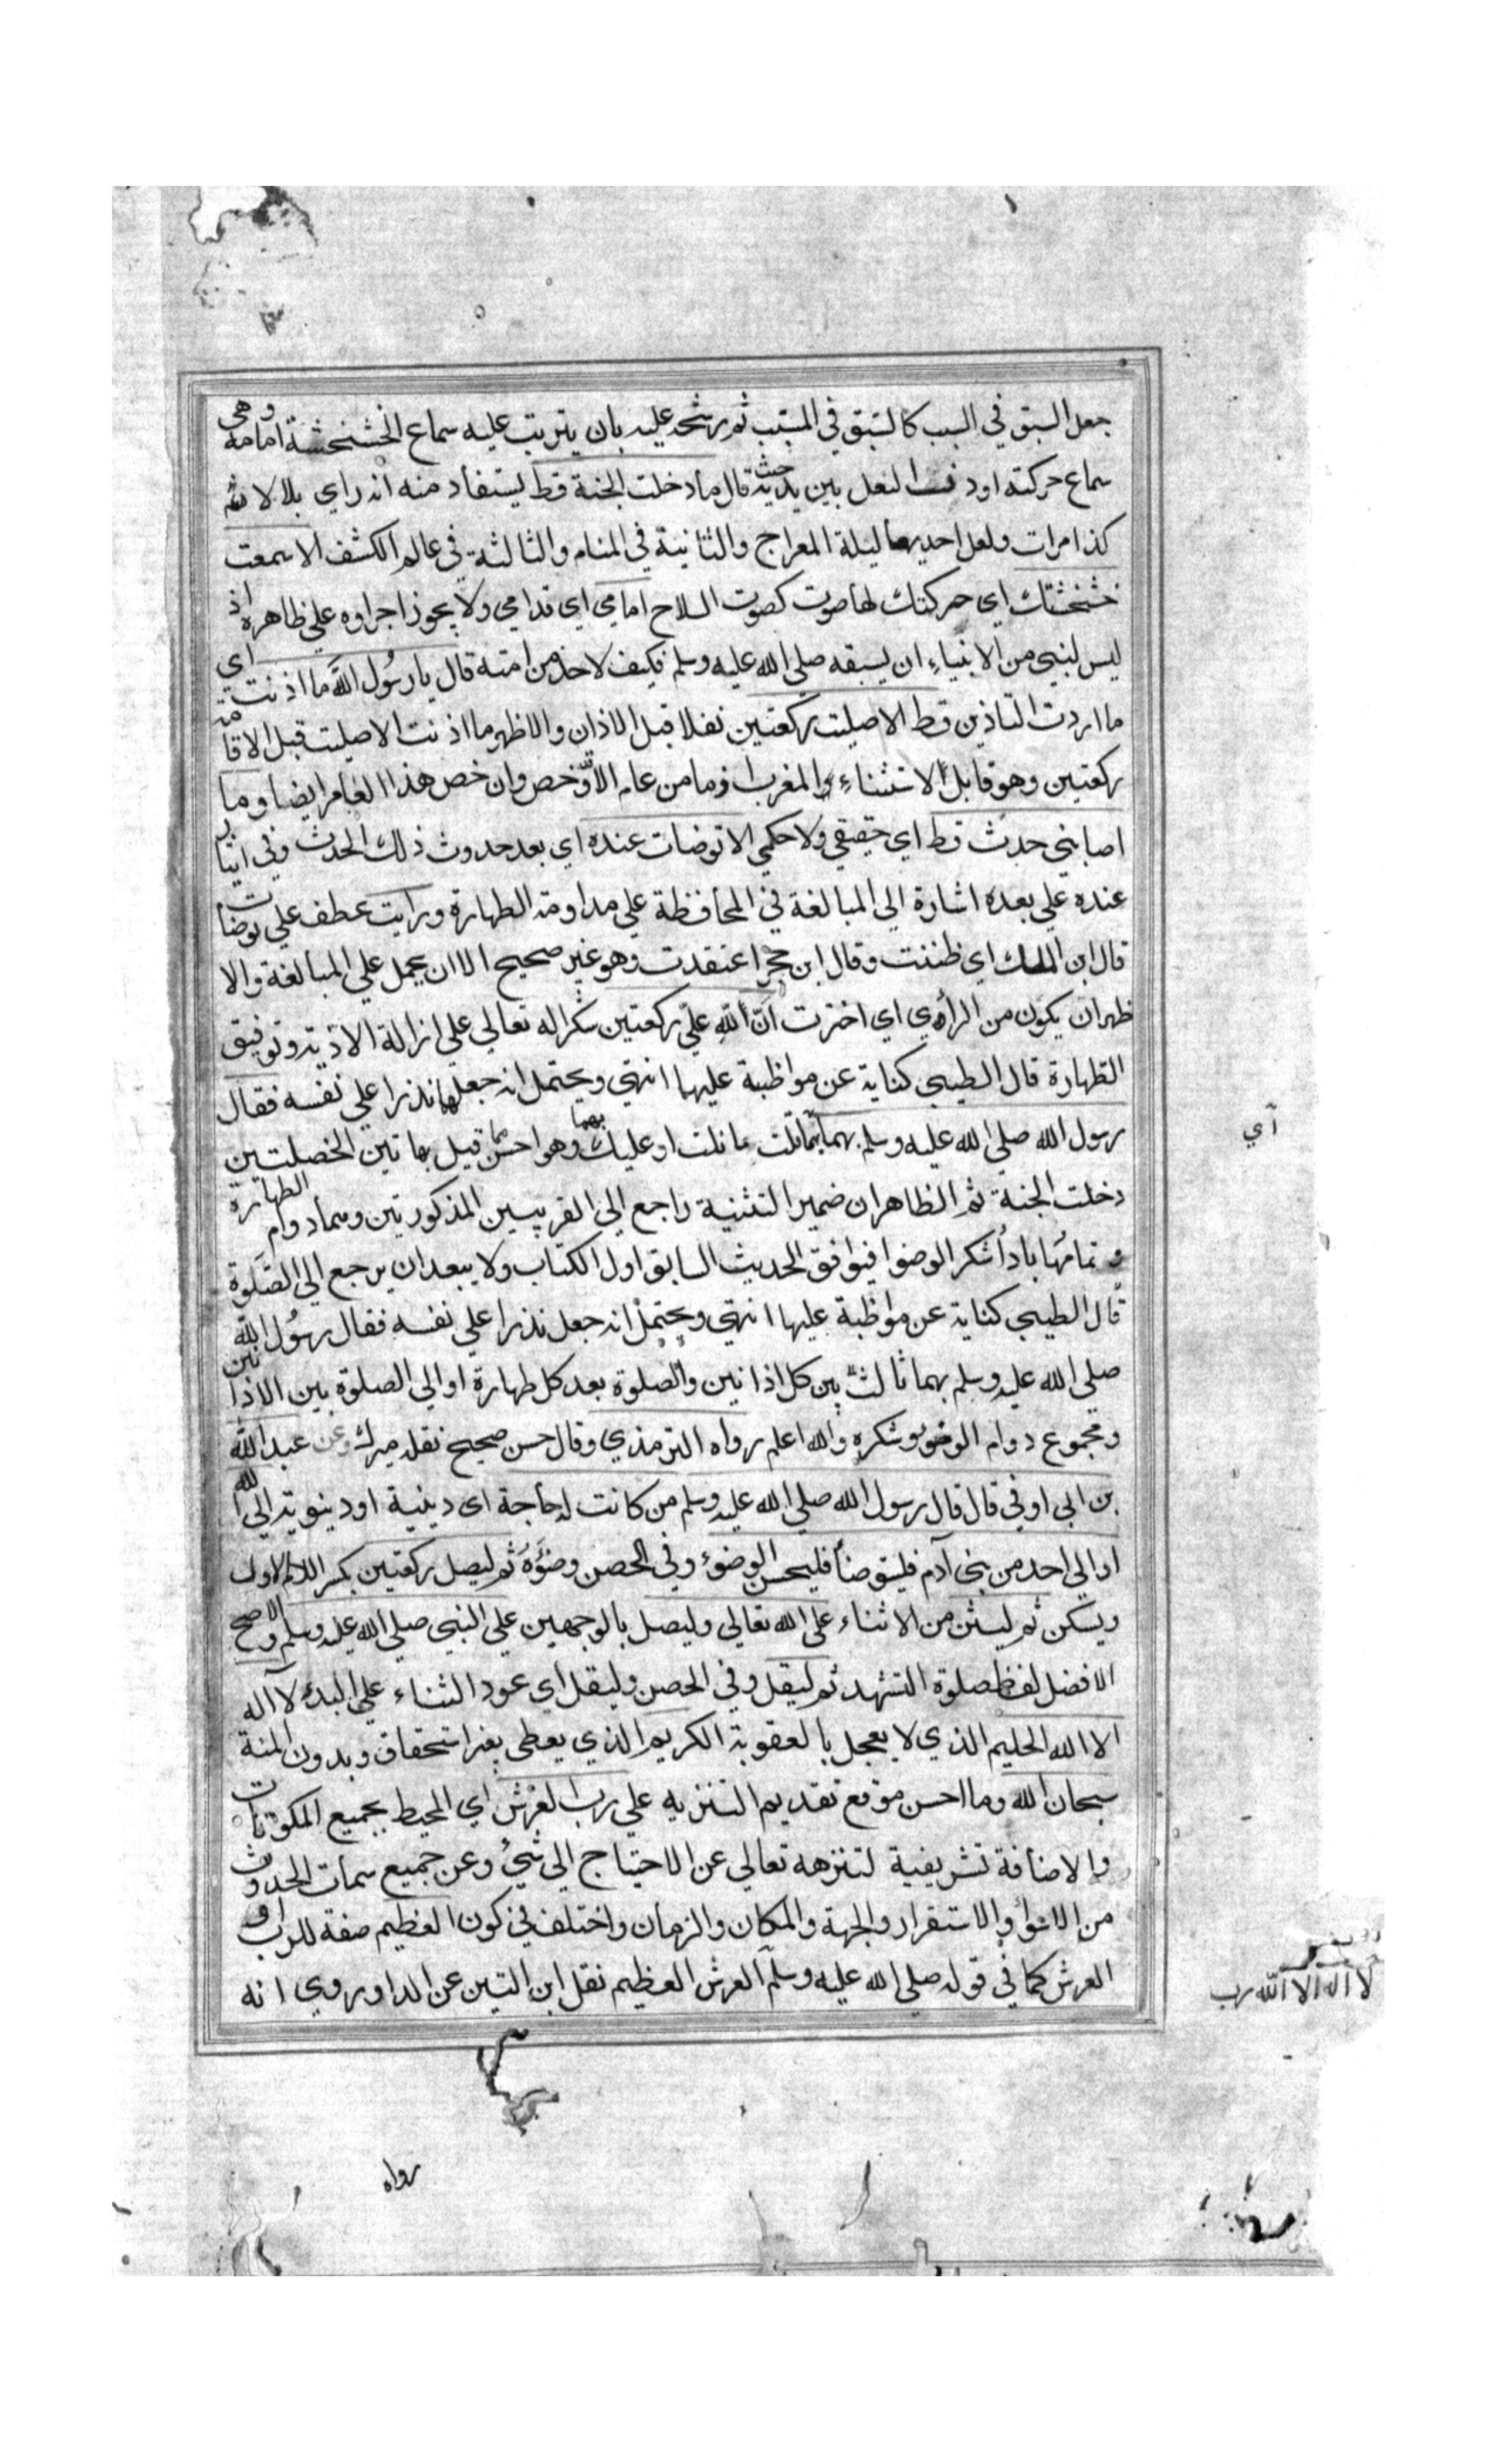 جعل السبق في السبب كالسبق في المسبب ثم رشحه عليه بان يترتب عليه سماع الخشخشة امامه وهي
سماع حركته او دف النعل بين يديه حيث قال ما دخلت الجنة قط يستفاد منه انه راي بلالا ثلث
كذا مرات ولعل احديها ليلة المعراج والثانية في المنام والثالثة في عالم الكشف الا سمعت
خشخشتك اي حركتك لها صوت كصوت السلاح امامي اي قدامي ولا يجوز اجراوه علي ظاهره اذ
ليس لنبي من الانبياء ان يسبقه صلي الله عليه وسلم فكيف لاحد من امته قال يا رسول الله ما اذنت اي
ما اردت التاذين قط الا صليت ركعتين نفلا قبل الاذان والاظهر ما اذنت الا صليت قبل الاقامة
ركعتين وهو قابل الاستثناء المغرب اذ ما من عام الا وخص وان خص هذا العام ايضا وما
اصابني حدث قط اي حقيقي ولا حكمي الا توضات عنده اي بعد حدوث ذلك الحدث وفي ايثار
عنده علي بعده اشارة الي المبالغة في المحافظة علي مداومة الطهارة ورايت عطف علي توضات
قال ابن الملك اي ظننت وقال ابن حجر اعتقدت وهو غير صحيح الا ان يحمل علي المبالغة والا
ظهر ان يكون من الرأي اي اخترت ان لله علي ركعتين شكرا له تعالي علي ازالة الاذية وتوفيق
الطهارة قال الطيبي كناية عن مواظبة عليها انتهي ويحتمل انه جعلها نذرا علي نفسه فقال
رسول الله صلي الله عليه وسلم بهما نلت ما نلت او عليك بهما وهو احسن مما قيل بهاتين الخصلتين
دخلت الجنة ثم الظاهر ان ضمير التثنية راجع الي القريبين المذكورتين وهما دوام الطهارة
وتمامها باداء شكر الوضوا فيوافق الحديث السابق اول الكتاب ولا يبعد ان يرجع الي الصلوة
قال الطيبي كناية عن مواظبة عليها انتهي ويحتمل انه جعل نذرا علي نفسه فقال رسول الله
صلي الله عليه وسلم بهما ثالث بين كل اذانين والصلوة بعد كل طهارة او الي الصلوة بين الاذانين
ومجموع دوام الوضو وشكره والله اعلم رواه الترمذي وقال حسن صحيح نقله ميرك وعن عبد الله
بن ابي اوفي قال قال رسول الله صلي الله عليه وسلم من كانت له حاجة اي دينية او دنيوية الي الله
او الي احد من بني آدم فليتوضأ فليحسن الوضوء وفي الحصن وضوءه ثم ليصل ركعتين بكسر اللام الاول
ويسكن ثم ليثن من الاثناء علي الله تعالي وليصل بالوجهين علي النبي صلي الله عليه وسلم والاصح
الافضل لفظ صلوة التشهد ثم ليقل وفي الحصن وليقل اي عود الثناء علي البدء لا اله
الا الله الحليم الذي لا يعجل بالعقوبة الكريم الذي يعطي بغير استحقاق وبدون المنة
سبحان الله وما احسن موقع تقديم التنزيه علي رب العرش اي المحيط بجميع المكونات
والاضافة تشريفية لتنزهه تعالي عن الاحتياج الي شئ وعن جميع سمات الحدوث
من الاستواء والاستقرار والجهة والمكان والزمان واختلف في كون العظيم صفة للرب او
العرش كما في قوله صلي الله عليه وسلم العرش العظيم نقل ابن التين عن الداوروي انه
اي
لا اله الا الله رب
رواه